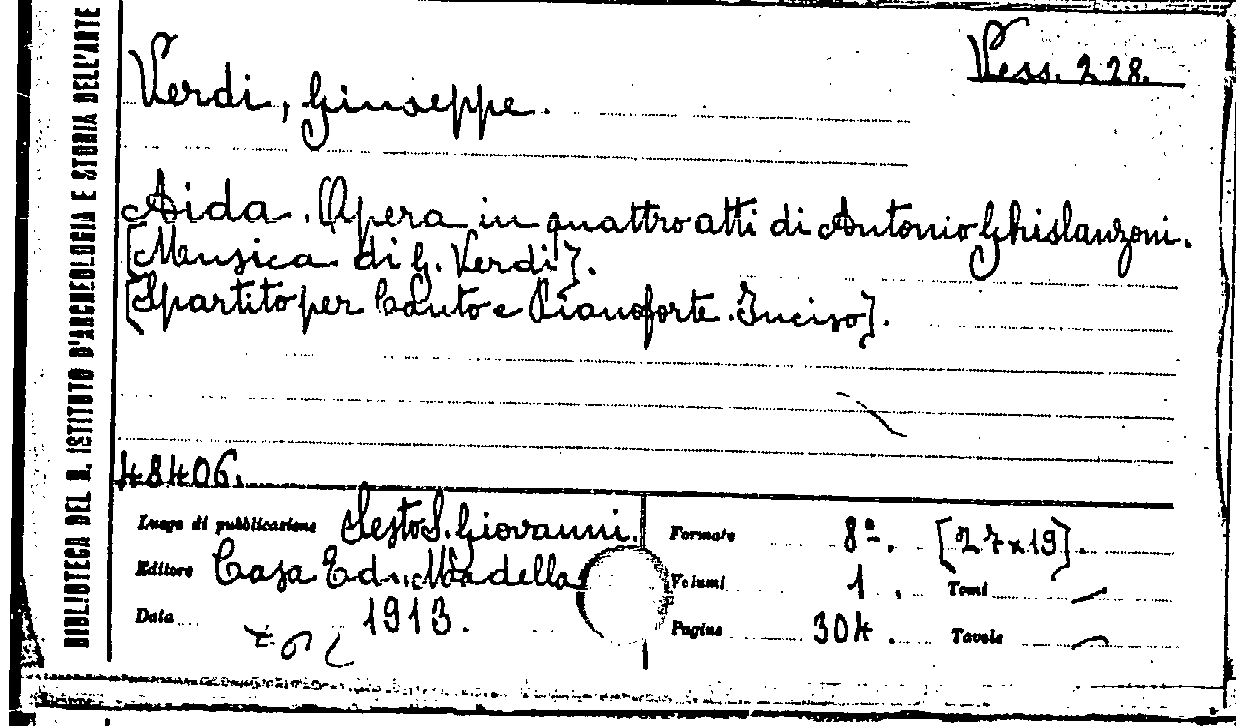 BIBLIOTECA DEL R. ISTITUTO D'ARCHEOLOGIA E STORIA DELL'ARTE
Vess. 228.
Verdi, Giuseppe.
Aida. Opera in quattro atti di Antonio Ghislanzoni.
[Musica di G. Verdi].
[Spartito per Canto e Pianoforte. Inciso].
48406.
Luogo di pubblicazione Sesto S. Giovanni.
Editore Casa Ed. Madella
Data 1913.
Formato 8º. [27x19].
Volumi 1. Tomi —
Pagine 304. Tavole —